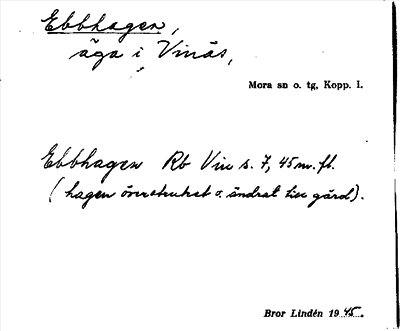 Ebbhagen,
äga i Vinäs,
Mora sn o. tg, Kopp. l.
Ebbhagen Rb Vin s. 7, 45 m. fl.
(hagen överstruket o. ändrat till gård).
Bror Lindén 1945.